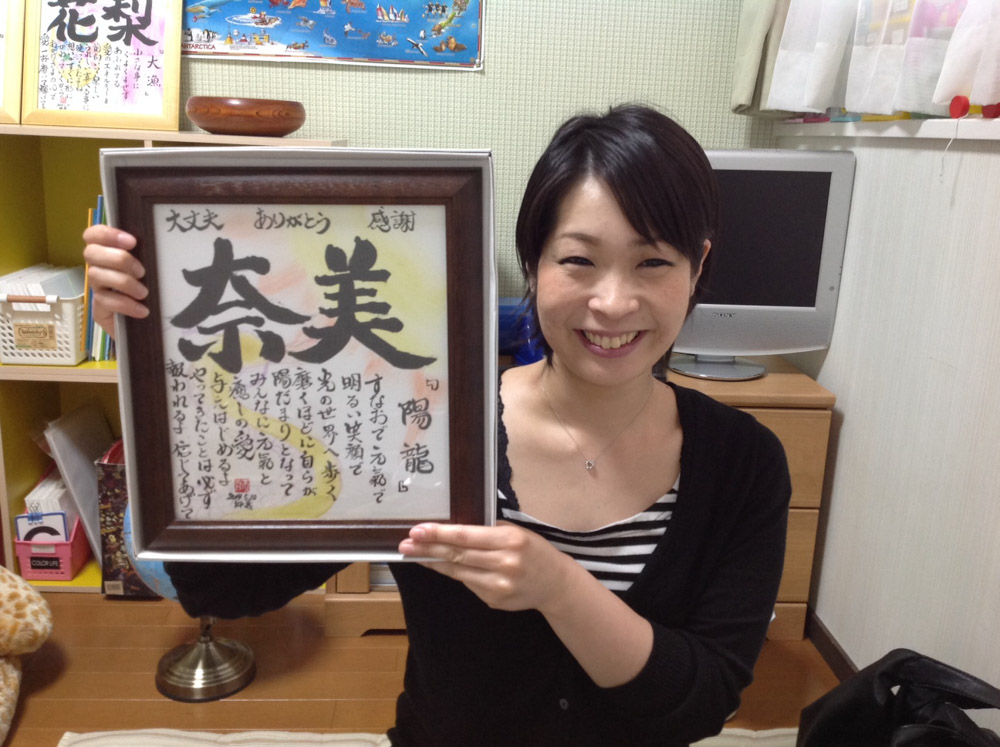 大丈夫 ありがとう 感謝
奈美
『陽龍』
すなおで元氣で
明るい笑顔で
光の世界へ歩く
磨くほどに自らが
陽だまりとなって
みんなに元氣と
癒しの愛
与えはじめるよ
やってきたことは必ず
報われるよ 信じてあげて
花梨
『大漁』
ANTARCTICA
SONY
COLOR LIFE